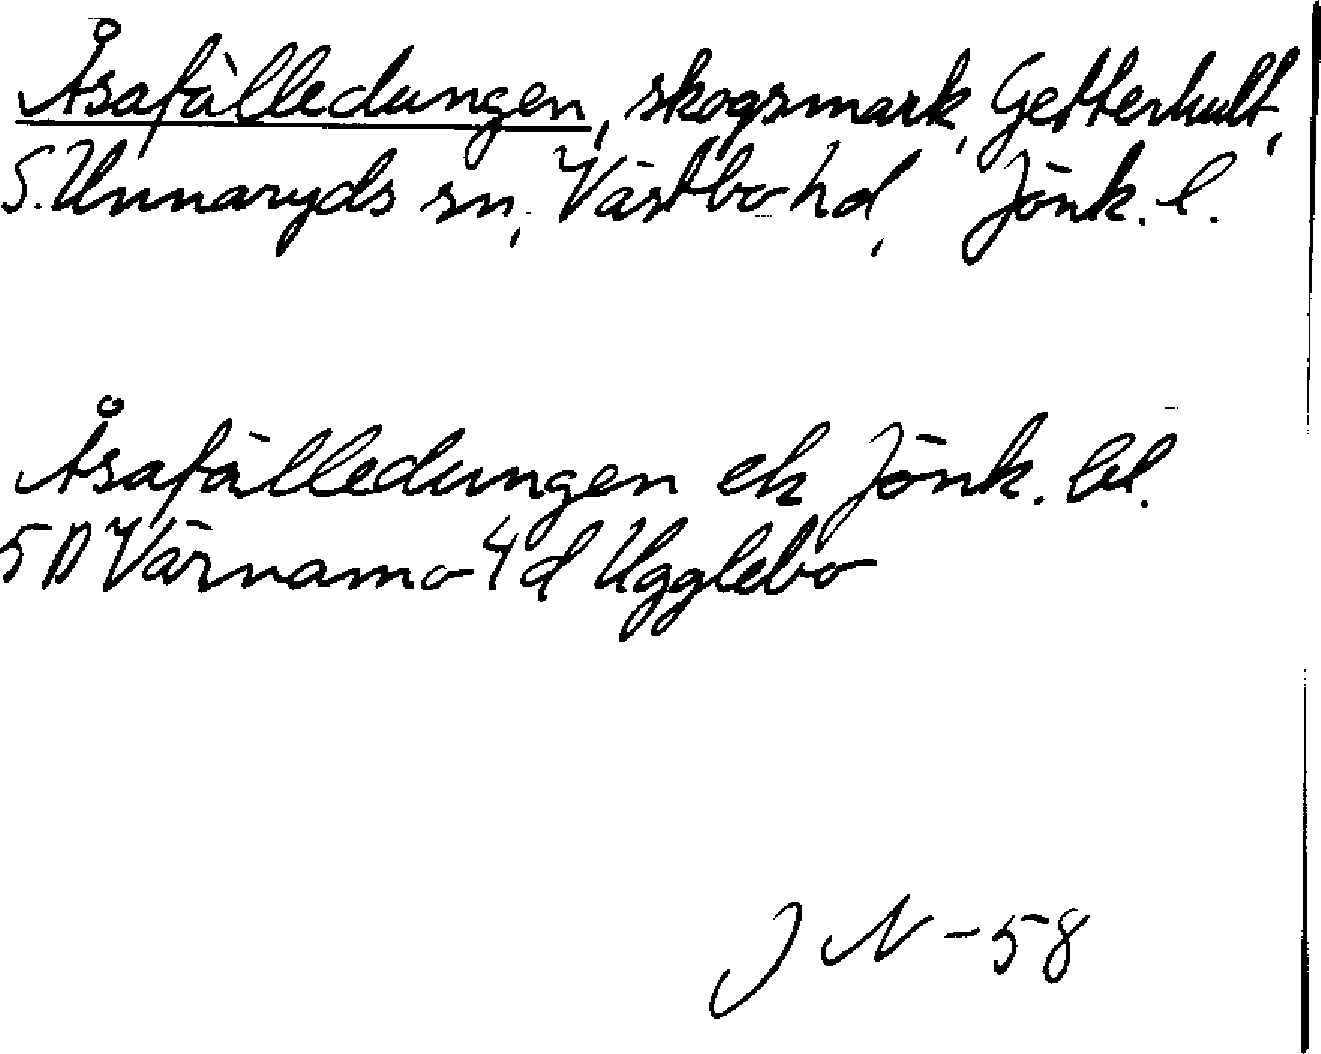 Åsafälledungen, skogsmark, Getterhult,
S. Unnaryds sn, Västbo hd, Jönk. l.
Åsafälledungen ek Jönk. bl.
5D Värnamo 4d Ugglebo
J N - 58